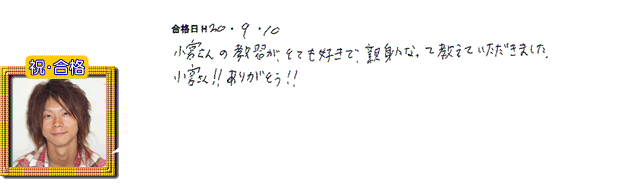 合格日 H20・9・10
小宮さんの教習が、とても好きで、親身になって教えていただきました。
小宮さん!!ありがとう!!
祝・合格